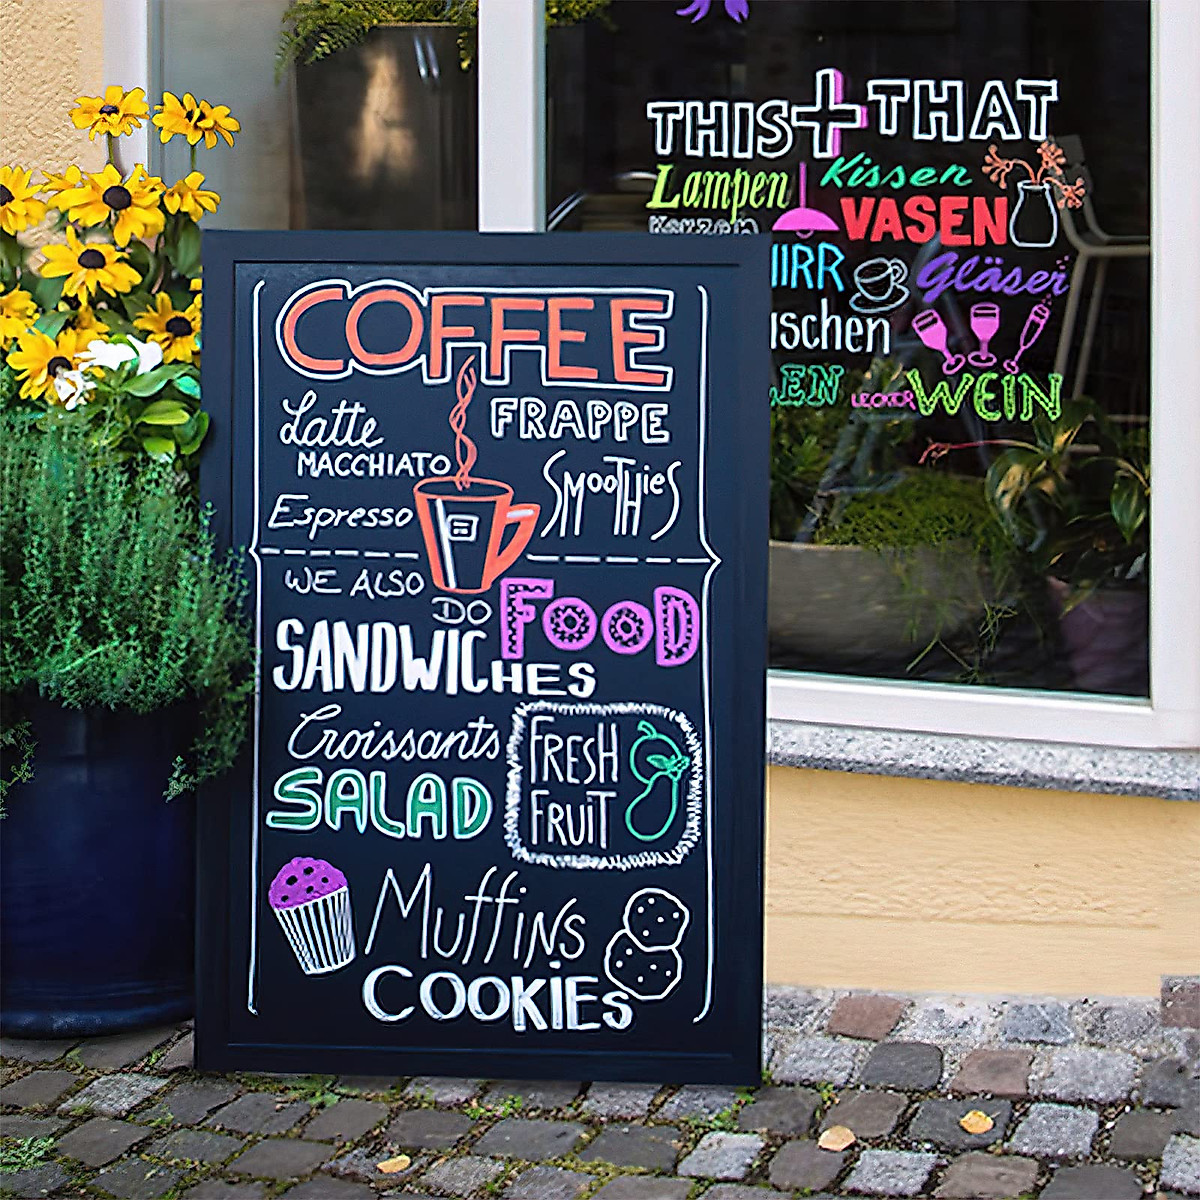 COFFEE
Latte FRAPPE
MACCHIATO
Espresso SMOOTHIES
WE ALSO
DO FOOD
SANDWICHES
Croissants
SALAD
FRESH
FRUIT
Muffins
COOKIES
THIS + THAT
Lampen Kissen
VASEN
Gläser
LECKER WEIN